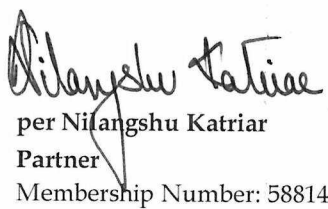 Nilangshu Katriar
per Nilangshu Katriar
Partner
Membership Number: 58814